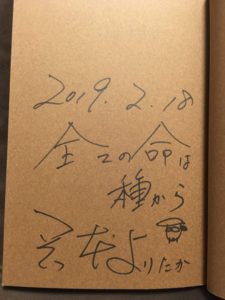 2019. 2. 18
全ての命は
種から
本よりたか